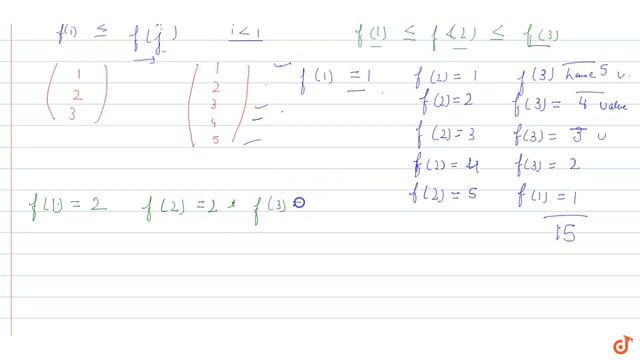 f(1) ≤ f(j) i < 1 f(1) ≤ f(2) ≤ f(3)
1 2 3
1 2 3 4 5
f(1) = 1
f(2) = 1 f(3) have 5 v.
f(2) = 2 f(3) = 4 value
f(2) = 3 f(3) = 3 v
f(2) = 4 f(3) = 2
f(2) = 5 f(1) = 1
15
f(1) = 2 f(2) = 2 f(3) =
doubtnut